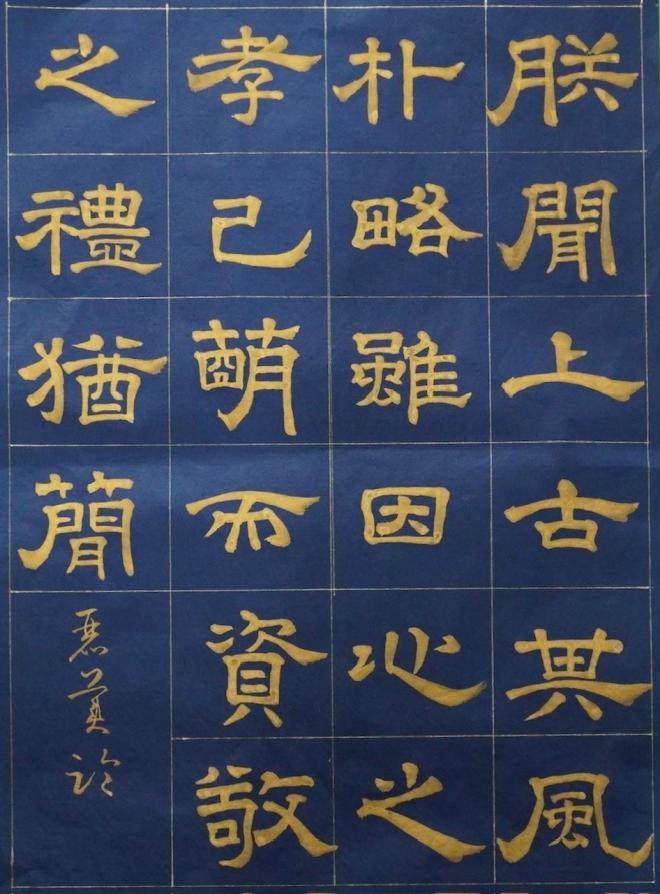 朕聞上古其風
朴略雖因心之
孝已萌而資敬
之禮猶簡